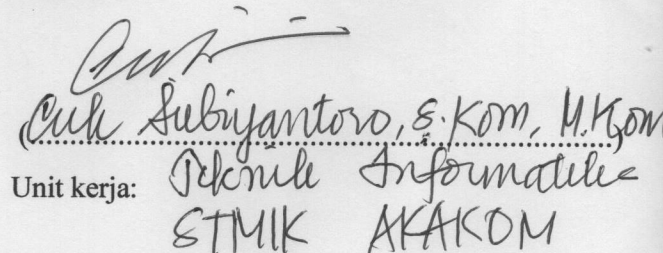 (Cuk Subiyantoro, S.Kom, M.Kom)
Unit kerja: Teknik Informatika
STMIK AKAKOM